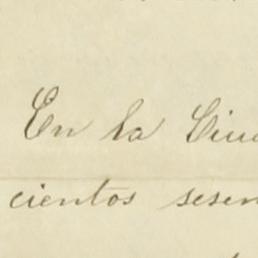 En la Ciu
cientos sesen